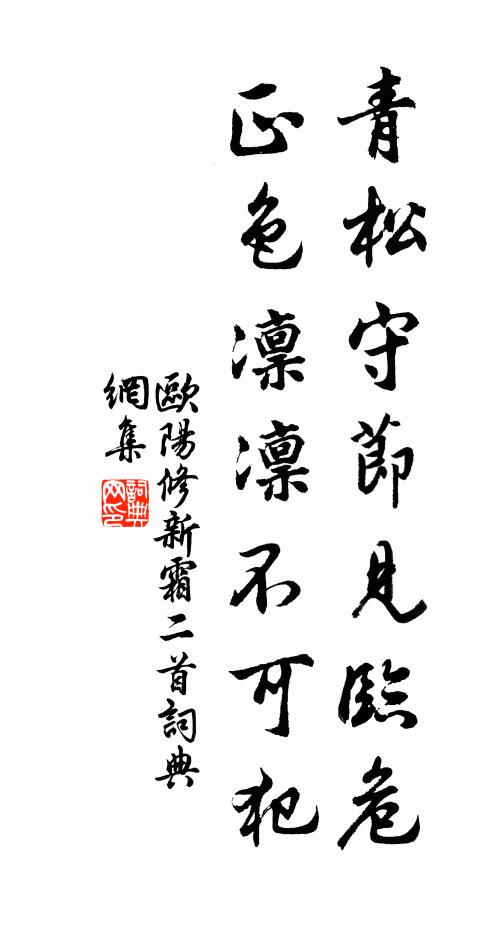 青松守節見臨危
正色凛凛不可犯
歐陽修新霜二首詞典
網集
詞典網印